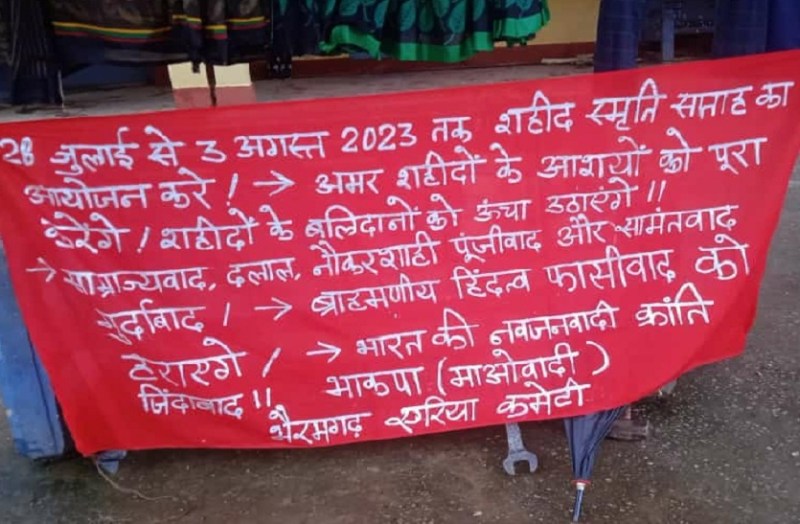 28 जुलाई से 3 अगस्त 2023 तक शहीद स्मृति सप्ताह का
आयोजन करे ! → अमर शहीदों के आशयों को पूरा
करेंगे / शहीदों के बलिदानों को ऊंचा उठाएंगे !!
→ साम्राज्यवाद, दलाल, नौकरशाही पूंजीवाद और सामंतवाद
मुर्दाबाद / → ब्राह्मणीय हिंदुत्व फासीवाद को
हराएगे / → भारत की नवजनवादी क्रांति
जिंदाबाद !! भाकपा (माओवादी)
भैरमगढ़ एरिया कमेटी